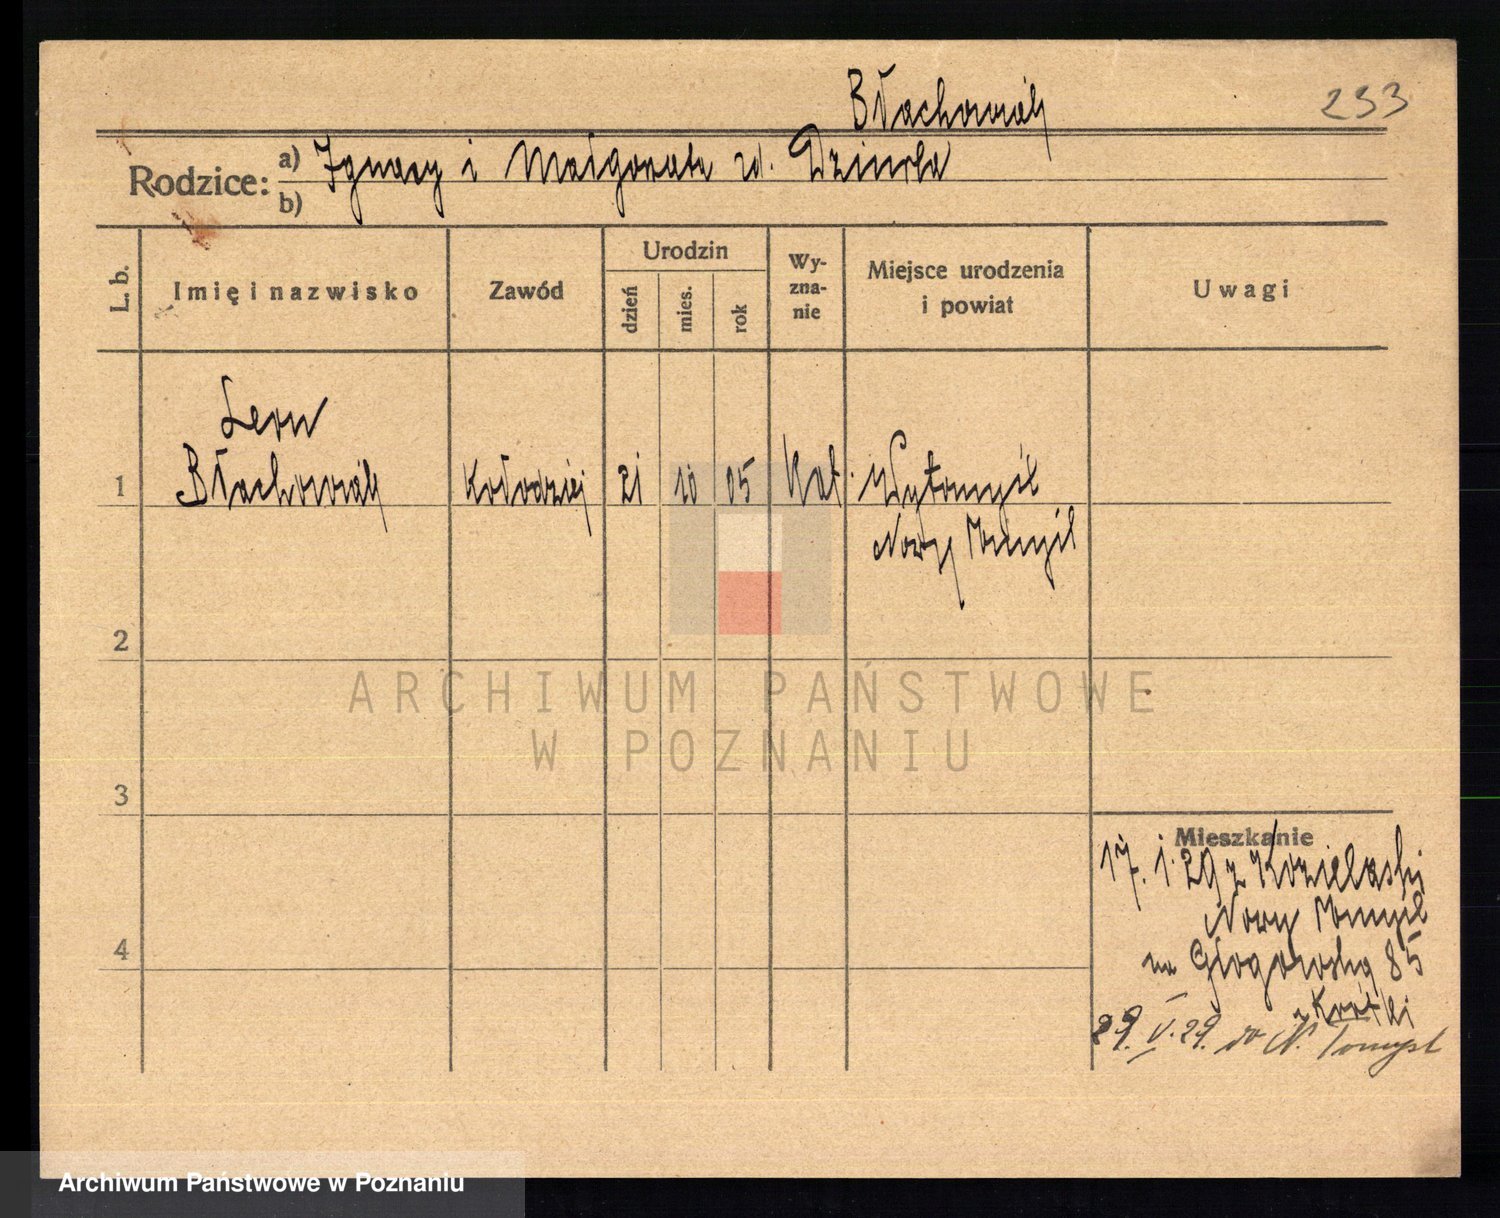 Błachowiak
233
Rodzice: a) Ignacy i Małgorzata rd. Dziurla
b)
L. b. Imię i nazwisko Zawód Urodzin dzień mies. rok Wy-zna-nie Miejsce urodzenia i powiat Uwagi
Leon
1 Błachowiak Kołodziej 21 10 05 Kat. Wytomyśl
Nowy Tomyśl
2
ARCHIWUM PAŃSTWOWE
W POZNANIU
3
Mieszkanie
17. 1. 29 z Kozielaski
Nowy Tomyśl
na Głogowską 85
29. V. 29. do N. Tomyśl
4
Archiwum Państwowe w Poznaniu